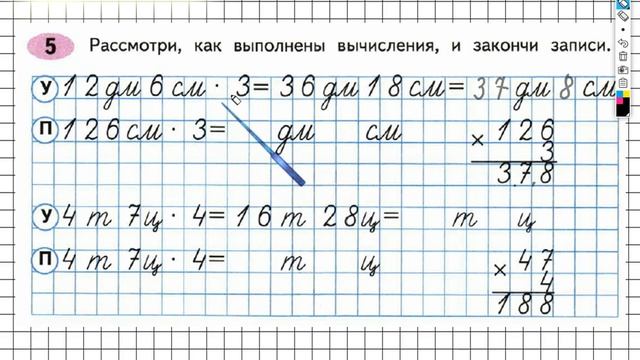 5 Рассмотри, как выполнены вычисления, и закончи записи.
У 12 дм 6 см · 3 = 36 дм 18 см = 37 дм 8 см
П 126 см · 3 = дм см
× 126
3
378
У 4 т 7 ц · 4 = 16 т 28 ц = т ц
П 4 т 7 ц · 4 = т ц
× 47
4
188